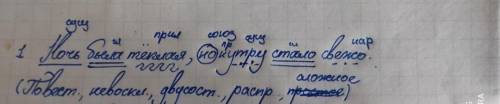 сущ гл прил союз пр сущ гл нар
1 Ночь была тёплая, но к утру стало свежо.
сложное
(Повест., невоскл., двусост., распр., простое)